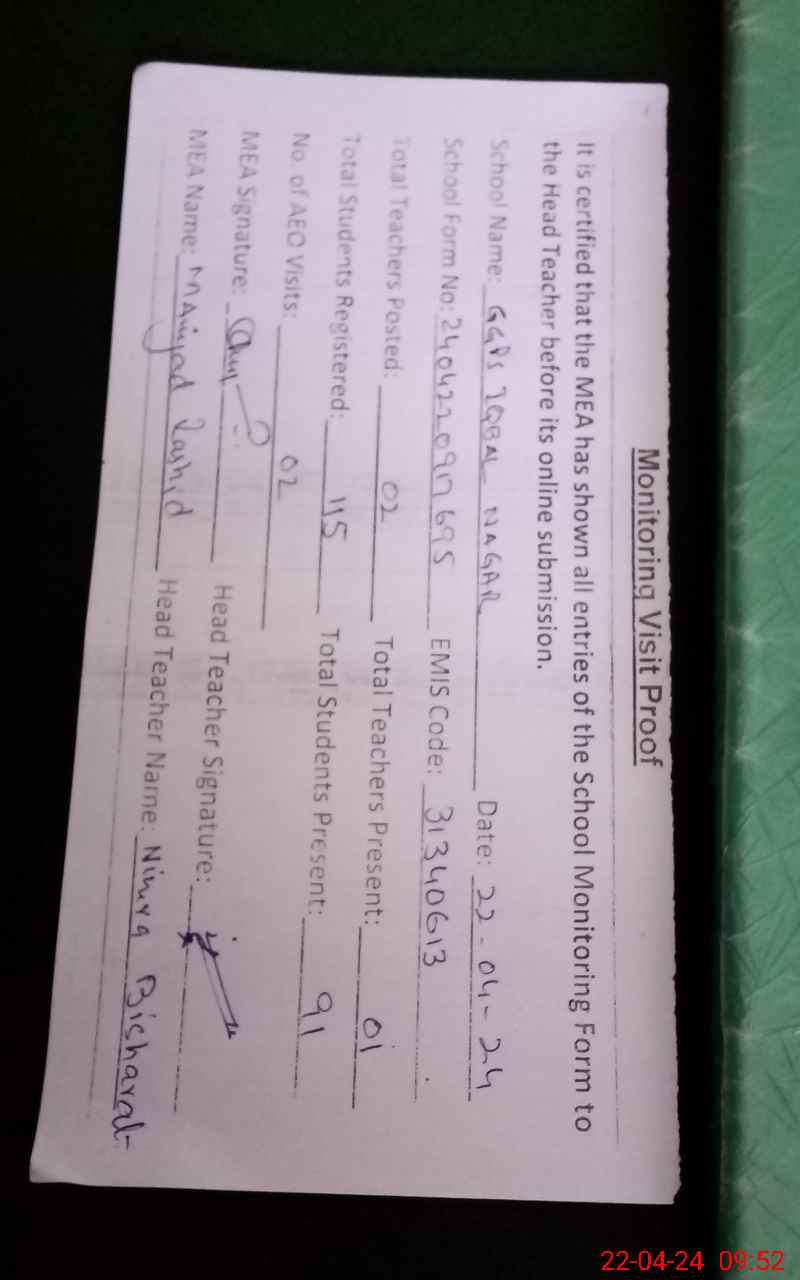 Monitoring Visit Proof
It is certified that the MEA has shown all entries of the School Monitoring Form to
the Head Teacher before its online submission.
School Name: GGPS IQBAL NAGAR Date: 22-04-24
School Form No: 2404220917695 EMIS Code: 31340613
Total Teachers Posted: 02 Total Teachers Present: 01
Total Students Registered: 115 Total Students Present: 91
No. of AEO Visits: 02
MEA Signature: Head Teacher Signature:
MEA Name: M Amjad Rashid Head Teacher Name: Nimra Bisharat
22-04-24 09:52